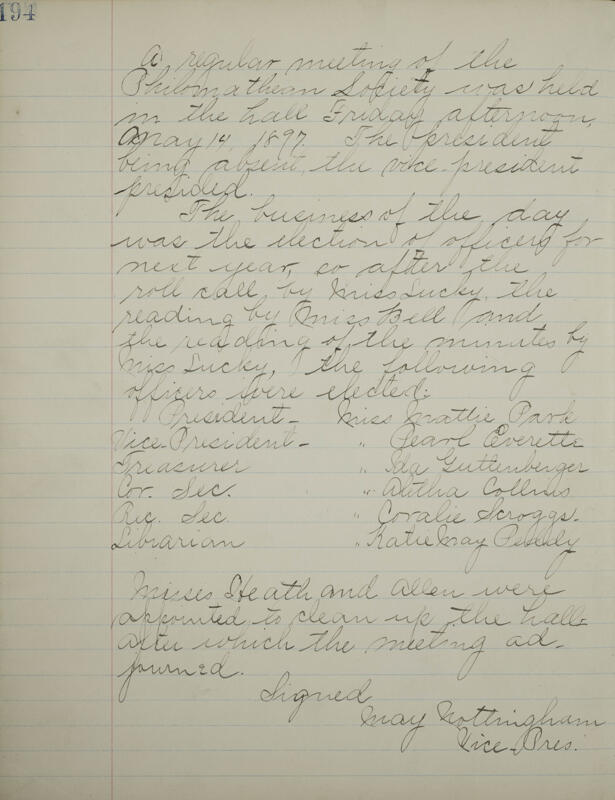 194
A regular meeting of the
Philomathean Society was held
in the hall Friday afternoon,
May 14, 1897. The president
being absent, the vice-president
presided.
The business of the day
was the election of officers for
next year, so after the
roll call by Miss Lucky, the
reading by Miss Bell and
the reading of the minutes by
Miss Lucky, the following
officers were elected:
President - Miss Mattie Park
Vice-President - " Pearl Everette
Treasurer " Ida Guttenberger
Cor. Sec. " Collins
Rec. Sec. " Coralie Scroggs.
Librarian " Katie May
Misses Heath and Allen were
appointed to clean up the hall
after which the meeting ad-
journed.
Signed
May Nottingham
Vice-Pres.